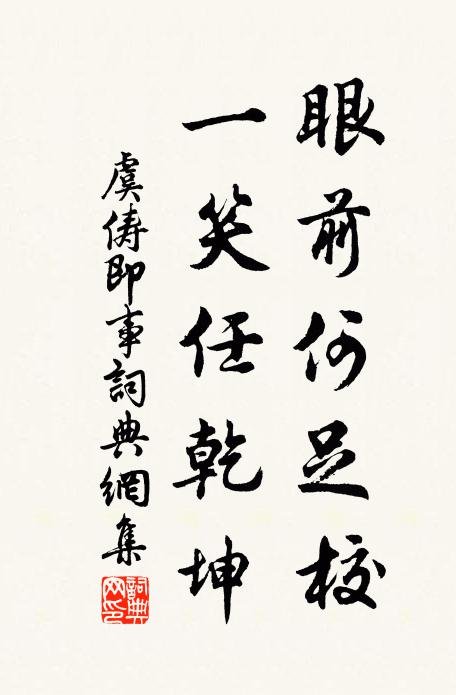 眼前何足校
一笑任乾坤
虞俦即事詞典網集
詞典網印